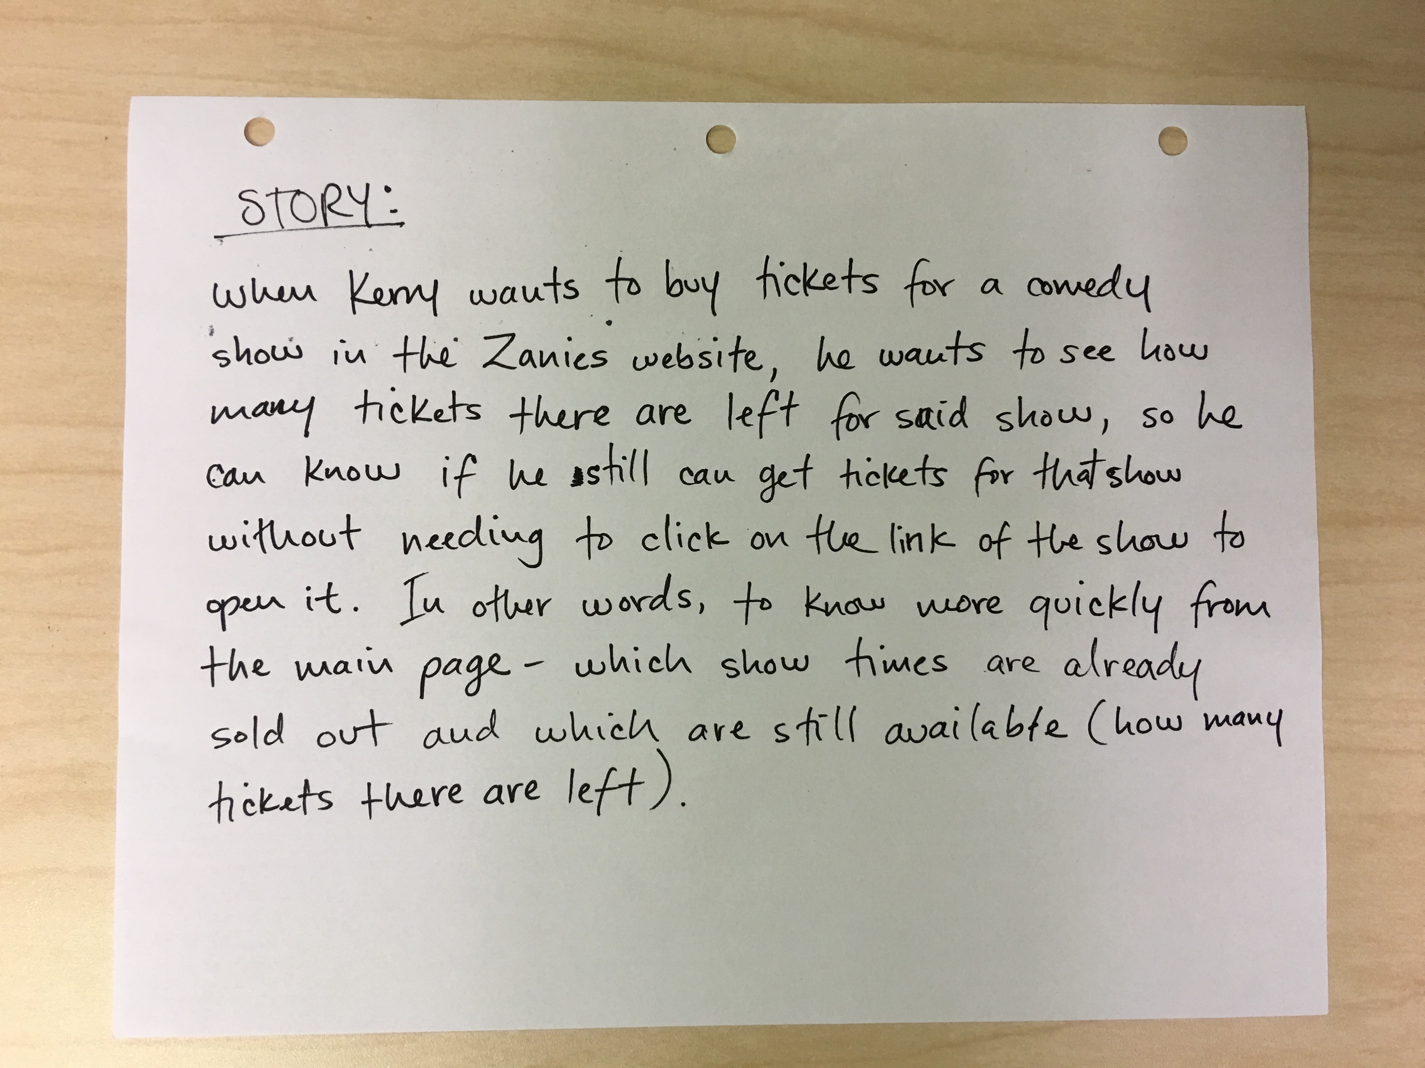 STORY:
When Kerry wants to buy tickets for a comedy
show in the Zanies website, he wants to see how
many tickets there are left for said show, so he
can know if he still can get tickets for that show
without needing to click on the link of the show to
open it. In other words, to know more quickly from
the main page - which show times are already
sold out and which are still available (how many
tickets there are left).